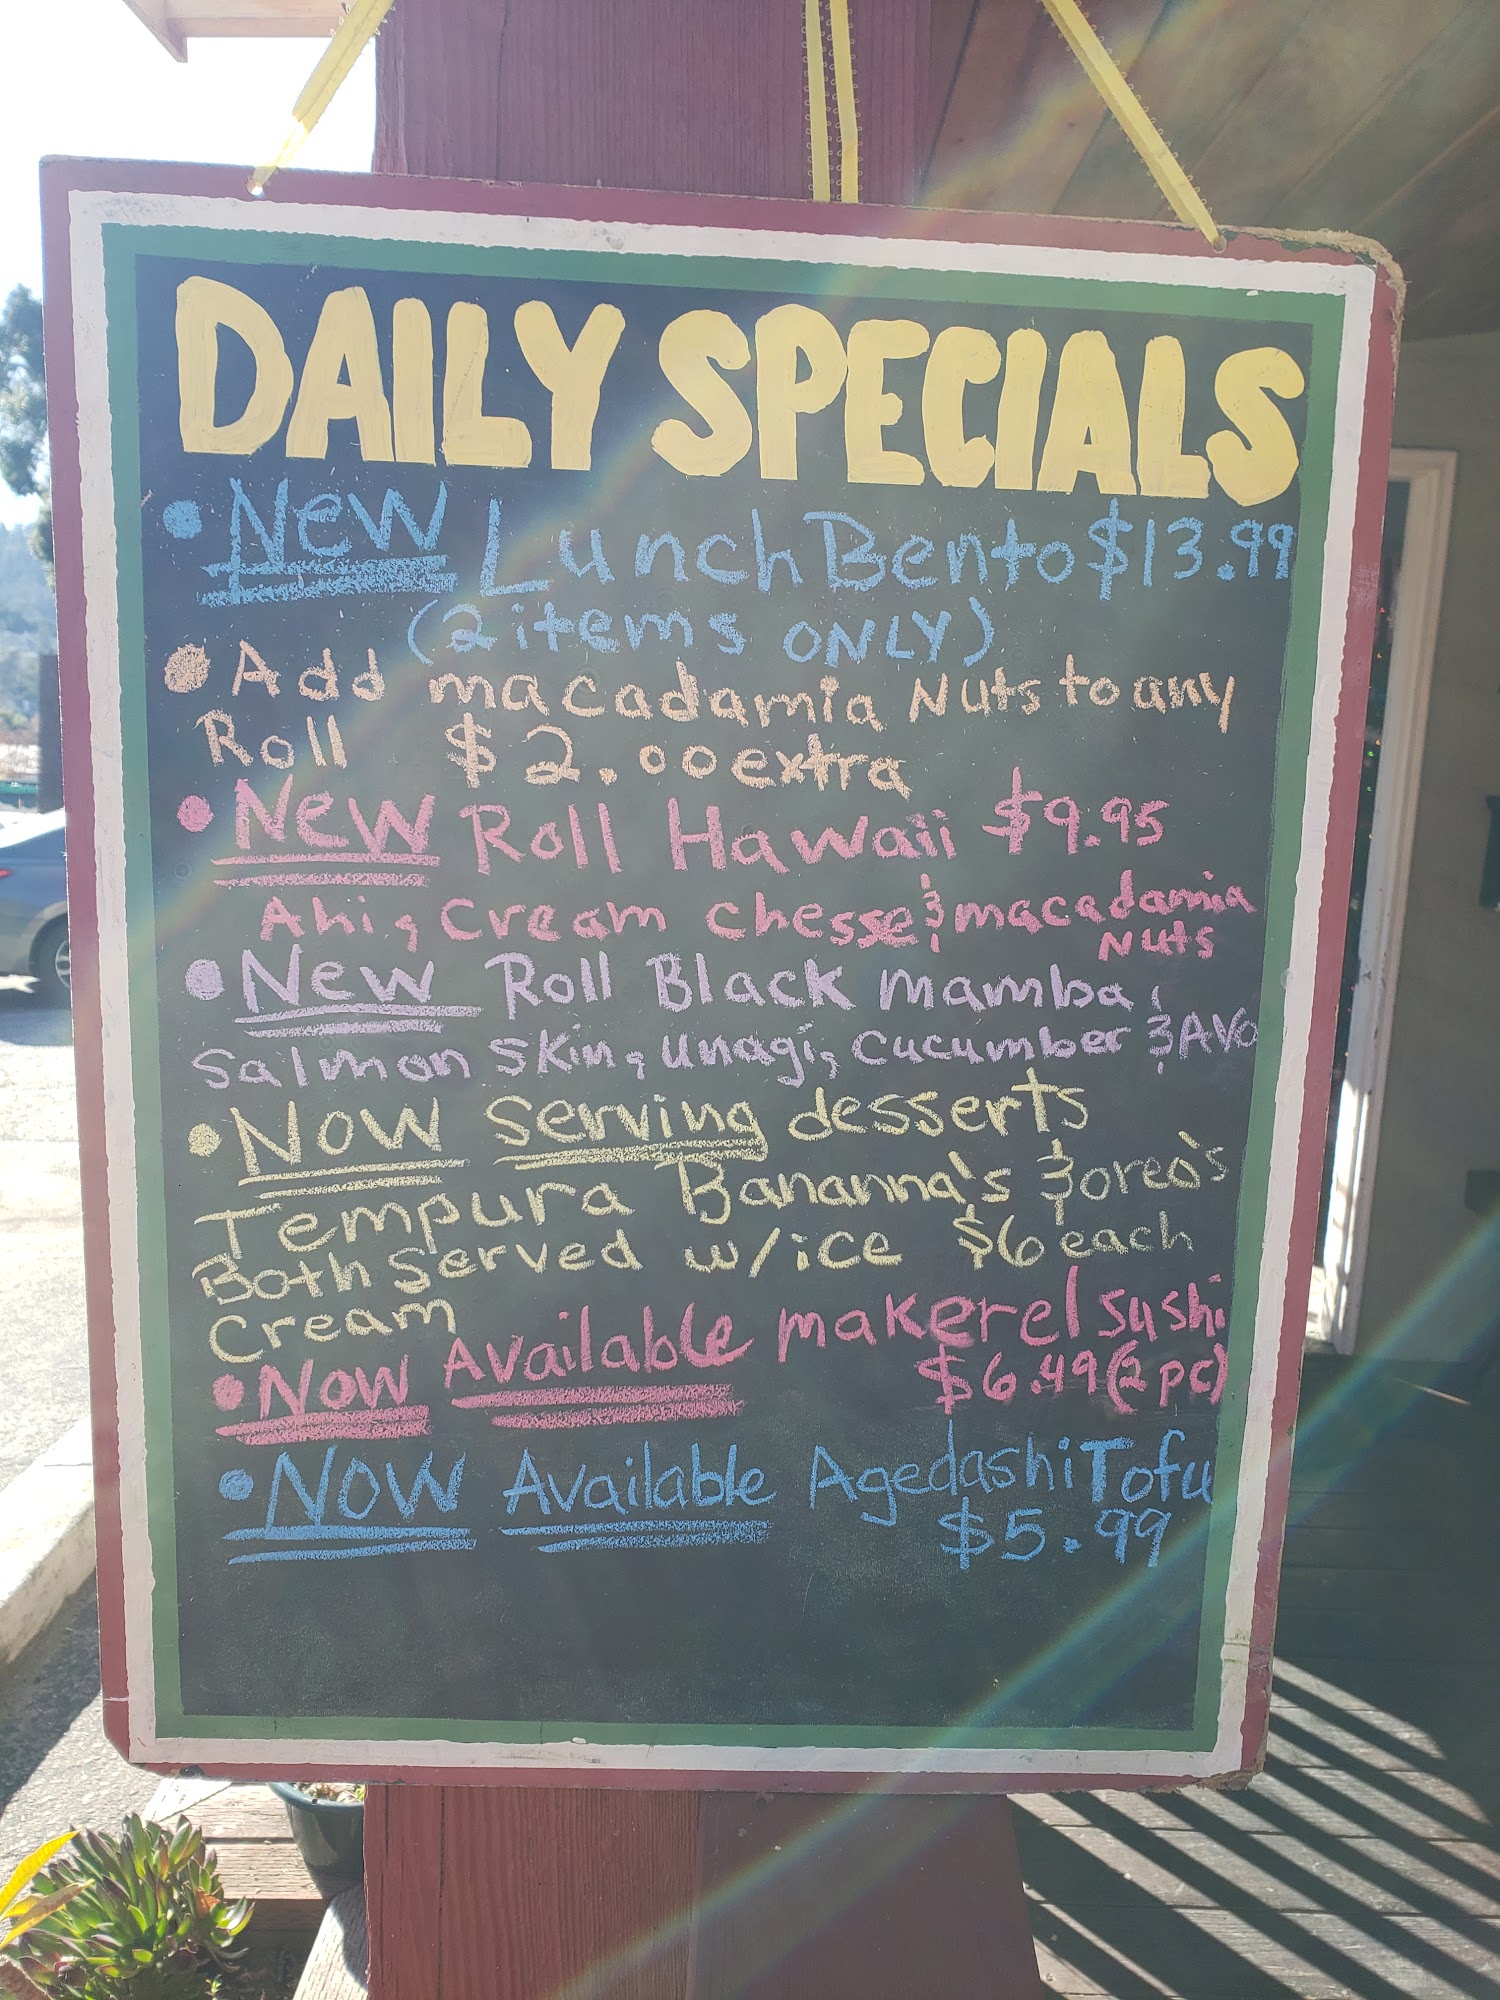 DAILY SPECIALS
• New Lunch Bento $13.99
(2 items ONLY)
• Add macadamia Nuts to any
Roll $2.00 extra
• New Roll Hawaii $9.95
Ahi, Cream Chesse & macadamia
Nuts
• New Roll Black mamba
Salmon skin, unagi, cucumber & AVO
• Now serving desserts
Tempura Bananna's & oreo's
Both served w/ice $6 each
Cream
• Now Available makerel sushi
$6.49 (2 pc)
• Now Available Agedashi Tofu
$5.99